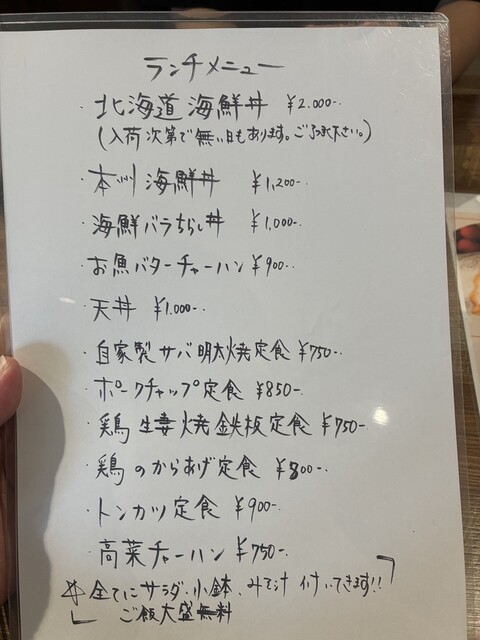 ランチメニュー
・北海道海鮮丼 ¥2.000-.
(入荷次第で無い日もあります。ご了承下さい。)
・本州海鮮丼 ¥1,200-.
・海鮮バラちらし丼 ¥1,000-.
・お魚バターチャーハン ¥900-.
・天丼 ¥1.000-.
・自家製サバ明太焼定食 ¥750-.
・ポークチャップ定食 ¥850-.
・鶏生妻焼鉄板定食 ¥750-.
・鶏のからあげ定食 ¥800-.
・トンカツ定食 ¥900-.
・高菜チャーハン ¥750-.
☆全てにサラダ、小鉢、みそ汁付いてきます!!
ご飯大盛無料